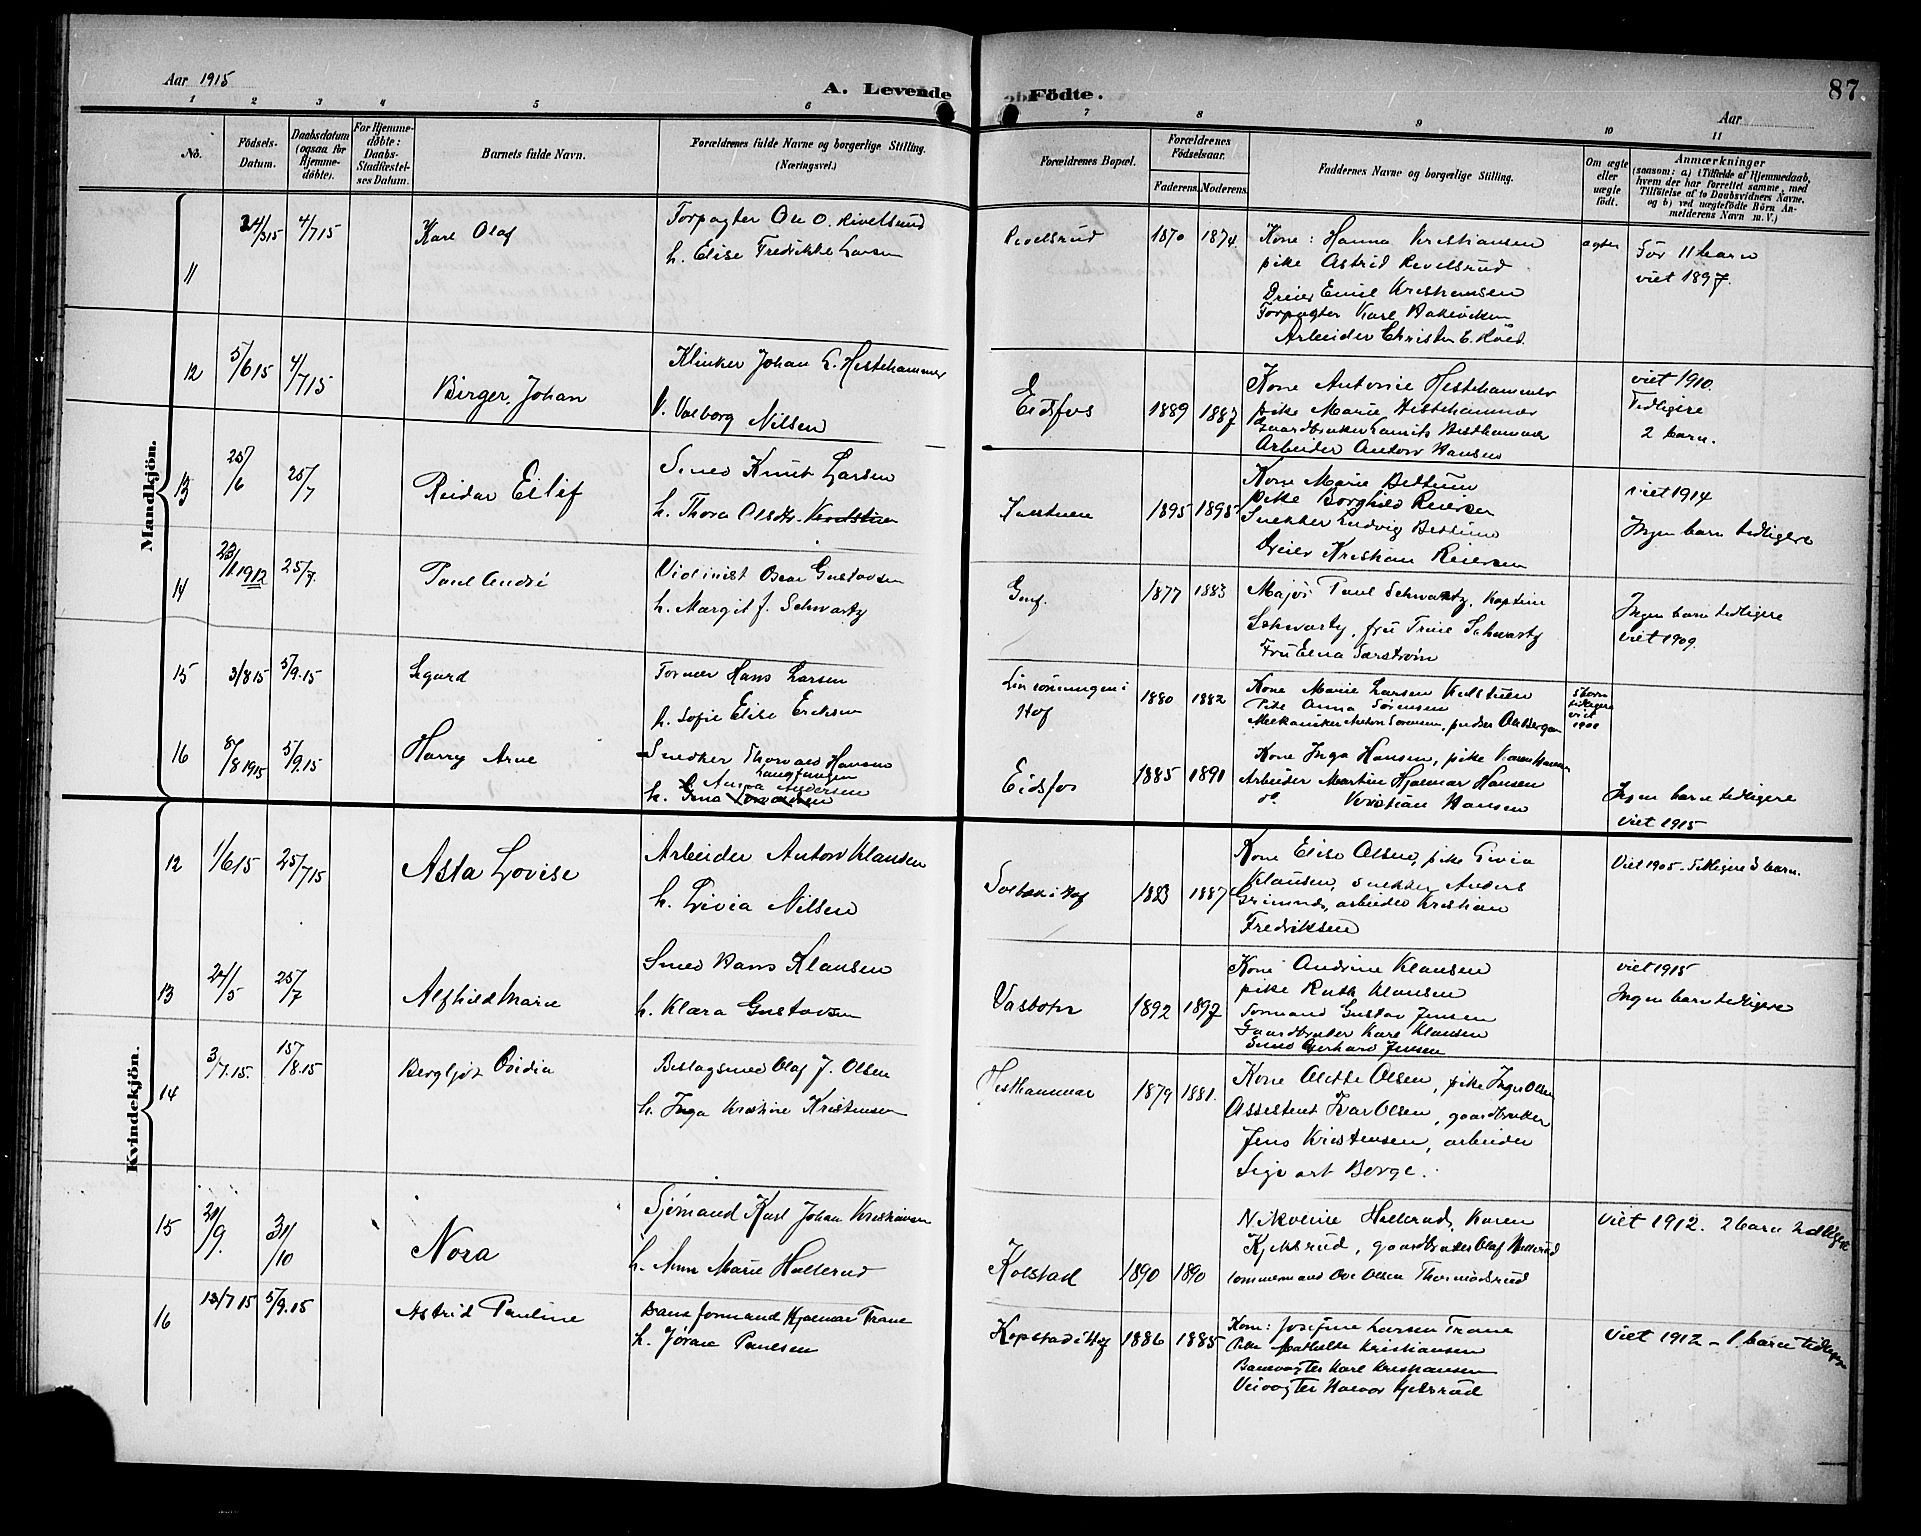 Aar 1915
A. Levende Födte.
87
Aar
1 2 3 4 5 6 7 8 9 10 11
No.
Födsels-Datum.
Daabsdatum (ogsaa for Hjemme-døbte).
For Hjemme-døbte: Daabs-Stadfæstel-ses Datum.
Barnets fulde Navn.
Forældrenes fulde Navne og borgerlige Stilling. (Næringsvei.)
Forældrenes Bopæl.
Forældrenes Födselsaar.
Faderens. Moderens.
Faddernes Navne og borgerlige Stilling.
Om ægte eller uægte födt.
Anmærkninger (saasom: a) i Tilfælde af Hjemmedaab, hvem der har forrettet samme, med Tilföielse af to Daabsvidners Navne, og b) ved uægtefödte Börn Anmelderens Navn m. V.)
Mandkjön.
11
24/5 15
4/7 15
Karl Olaf
Forpagter Ole O. Rivelsrud
h. Elise Fredrikke Larsen
Revelsrud
1870
1874
Kone: Hanna Kristiansen
pike Astrid Revelsrud
Dreier Emil Kristiansen
Forpagter Karl
Arbeider Christen E.
ægte
Før 11 barn
viet 1897.
12
5/6 15
4/7 15
Birger Johan
Klinker Johan L. Hestehammer
h. Valborg Nilsen
Eidsfos
1889
1887
Kone Antonie Hestehammer
pike Marie Hestehammer
Gaardbruker Laurits Hesthammer
Arbeider Anton Hansen
viet 1910.
Tidligere
2 barn.
13
25/6
25/7
Reidar Eilif
Smed Knut Larsen
h. Thora Olsdtr.
1895
1895
Kone Marie Bettum
pike Borghild Reiersen
Snekker Ludvig Bettum
Dreier Kristian Reiersen
viet 1914
Ingen barn tidligere
14
23/1 1912
25/7.
Paul André
Violinist Oscar Gustavsen
h. Margit J. Schwartz
Genf.
1877
1883
Major Paul Schwartz, Kaptein
Schwartz, fru Trine Schwartz
Fru Elna Sarstrøm
Ingen barn tidligere
viet 1909.
15
3/8 15
5/9. 15
Sigurd
Former Hans Larsen
h. Sofie Elise Eriksen
Hof
1880
1882
Kone Marie Larsen
Pike Anna Sørensen
Mekaniker Anton Sørensen,
5 barn
tidligere
viet
16
8/8 1915
5/9. 15
Harry Arne
Snedker Thorvald Hansen
Langfangen
h. Anna Andersen
Eidsfos
1885
1891
Kone Inga Hansen, pike
Arbeider Martin Hjalmar Hansen
do Kristian Hansen
Ingen barn tidligere
viet 1915
Kvindekjön.
12
1/6 15
25/7 15
Asta Lovise
Arbeider Anton Klausen
h. Livia Nilsen
i Hof
1883
1887
Kone Elise Olsen, pike Livia
Klausen, snekker Anders
Grimnes, arbeider Kristian
Fredriksen
Viet 1905. Tidligere 3 barn.
13
24/5
25/7
Alfhild Marie
Smed Hans Klausen
h. Klara Gustavsen
Vasbotn
1892
1897
Kone Andrine Klausen
pike Ruth Klausen
Formand Gustav Jensen
Gaardbruker Karl Klausen
Smed Gerhard Jensen
viet 1915
Ingen barn tidligere
14
3/7. 15.
15/8. 15
Bergljot Ovidia
Beslagsmed Olaf J. Olsen
h. Inga Kristine Kristensen
Hesthammer
1879
1881.
Kone Olette Olsen, pike Inga Olsen
Assistent Ivar Olsen, gaardbruker
Jens Kristensen, arbeider
Sigvart Berge.
15
21/9.
31/10
Nora
Sjømand Karl Johan Kristiansen
h. Ann Marie Hallerud
Kolstad
1890
1890
Nikoline Hallerud, Karen
Kjeksrud, gaardbruker Olaf Hallerud
tømmermand Ove Olsen Thormodsrud
viet 1912. 2 barn tidligere
16
13/7 15
5/9. 15
Astrid Pauline
Baneformand Hjalmar Trane
h. Jørane Paulsen
Kopstad i Hof
1886
1885
Kone: Josefine Larsen Trane
Pike Mathilde Kristiansen
Banevogter Karl Kristiansen
Veivogter Halvor Kjeksrud
viet 1912 – 1 barn tidligere